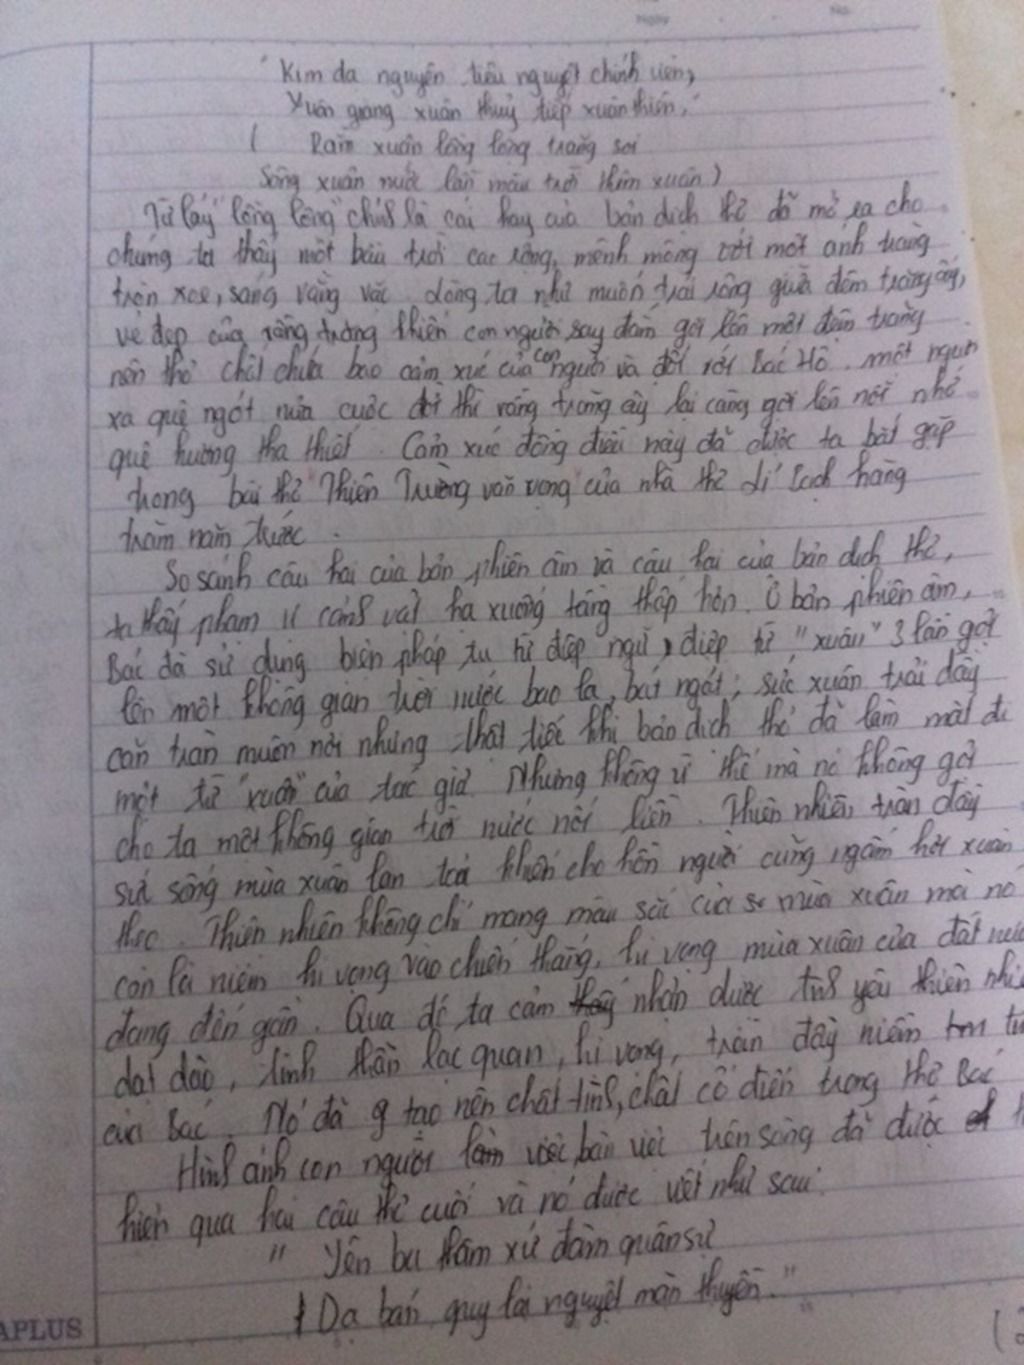 "Kim dạ nguyên tiêu nguyệt chính viên,
Xuân giang xuân thuỷ tiếp xuân thiên,"
( Rằm xuân lồng lộng trăng soi
Sông xuân nước lẫn màu trời thêm xuân)
Từ láy "lồng lộng" chính là cái hay của bản dịch thơ đã mở ra cho
chúng ta thấy một bầu trời cao rộng, mênh mông với một ánh trăng
tròn xoe, sáng vằng vặc. dòng ta như muốn trải rộng giữa đêm trăng ấy,
vẻ đẹp của vầng trăng khiến con người say đắm gợi lên một đêm trăng
nên thơ chất chứa bao cảm xúc của con người và đối với Bác Hồ. một người
xa quê ngót nửa cuộc đời thì vầng trăng ấy lại càng gợi lên nỗi nhớ
quê hương tha thiết. Cảm xúc đồng điệu này đã được ta bắt gặp
trong bài thơ "Thiên Trường vãn vọng" của nhà thơ Lí hàng
trăm năm trước.
So sánh câu hai của bản phiên âm và câu hai của bản dịch thơ,
ta thấy phạm vi cảnh vật hạ xuống tầng thấp hơn. Ở bản phiên âm,
Bác đã sử dụng biện pháp tu từ điệp ngữ, điệp từ "xuân" 3 lần gợi
lên một không gian trời nước bao la, bát ngát; sức xuân trải dầy
căn tràn muôn nơi nhưng thật tiếc khi bản dịch thơ đã làm mất đi
một từ "xuân" của tác giả. Nhưng không vì thế mà nó không gợi
cho ta một không gian trời nước nối liền. Thiên nhiên tràn đầy
sức sống mùa xuân lan toả khiến cho hồn người cũng ngấm hơi xuân
Thiên nhiên không chỉ mang màu sắc của mùa xuân mà nó
còn là niềm hi vọng vào chiến thắng, hi vọng mùa xuân của đất nước
đang đến gần. Qua đó, ta cảm nhận được tình yêu thiên
dạt dào, tinh thần lạc quan, hi vọng, tràn đầy niềm tin
của Bác. Nó đã tạo nên chất tình, chất cổ điển trong thơ Bác
Hình ảnh con người làm việc, bàn việc trên sông đã được
hiện qua hai câu thơ cuối và nó được viết như sau:
" Yên ba thâm xứ đàm quân sự
Dạ bán quy lai nguyệt mãn thuyền."
APLUS